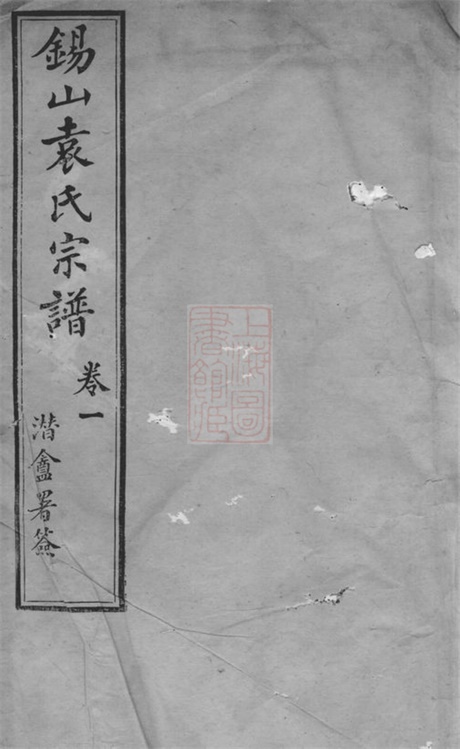 錫山袁氏宗譜
卷一
潜盦署簽
上海圖
書館藏